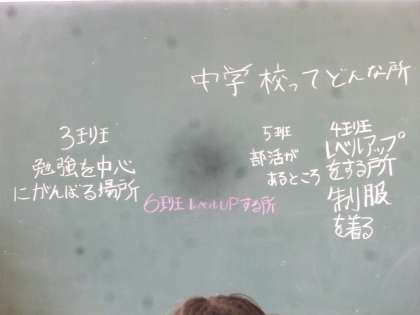 中学校ってどんな所
3班
勉強を中心
にがんばる場所
6班 レベルUPする所
5班
部活が
あるところ
4班
レベルアップ
をする所
制服
を着る